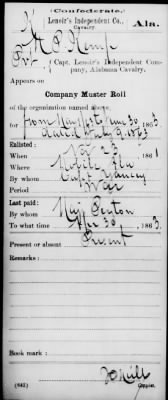 (Confederate.)
Lenoir's Independent Co., Ala.
Cavalry
Pvt, Capt. Lenoir's Independent Com-
pany, Alabama Cavalry.
Appears on
Company Muster Roll
of the organization named above,
for June 30, 1863
dated 1863
Enlisted:
When 23, 1861
Where Ala
By whom Capt
Period War
Last paid:
By whom Maj Peyton
To what time 30, 1863
Present or absent Present
Remarks:
Book mark:
(642)
Copyist.